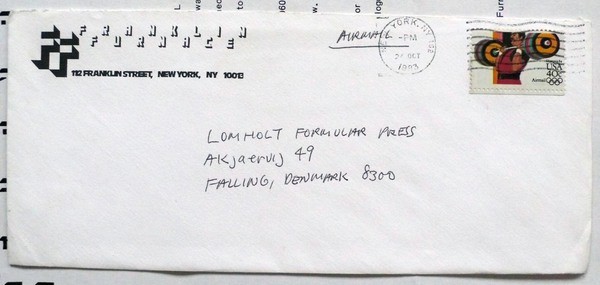 FRANKLIN
FURNACE
112 FRANKLIN STREET, NEW YORK, NY 10013
AIRMAIL
YORK, NY
-PM
OCT
1983
USA
40c
Airmail
LOMHOLT FORMULAR PRESS
AKjaervij 49
FALLING, DENMARK 8300